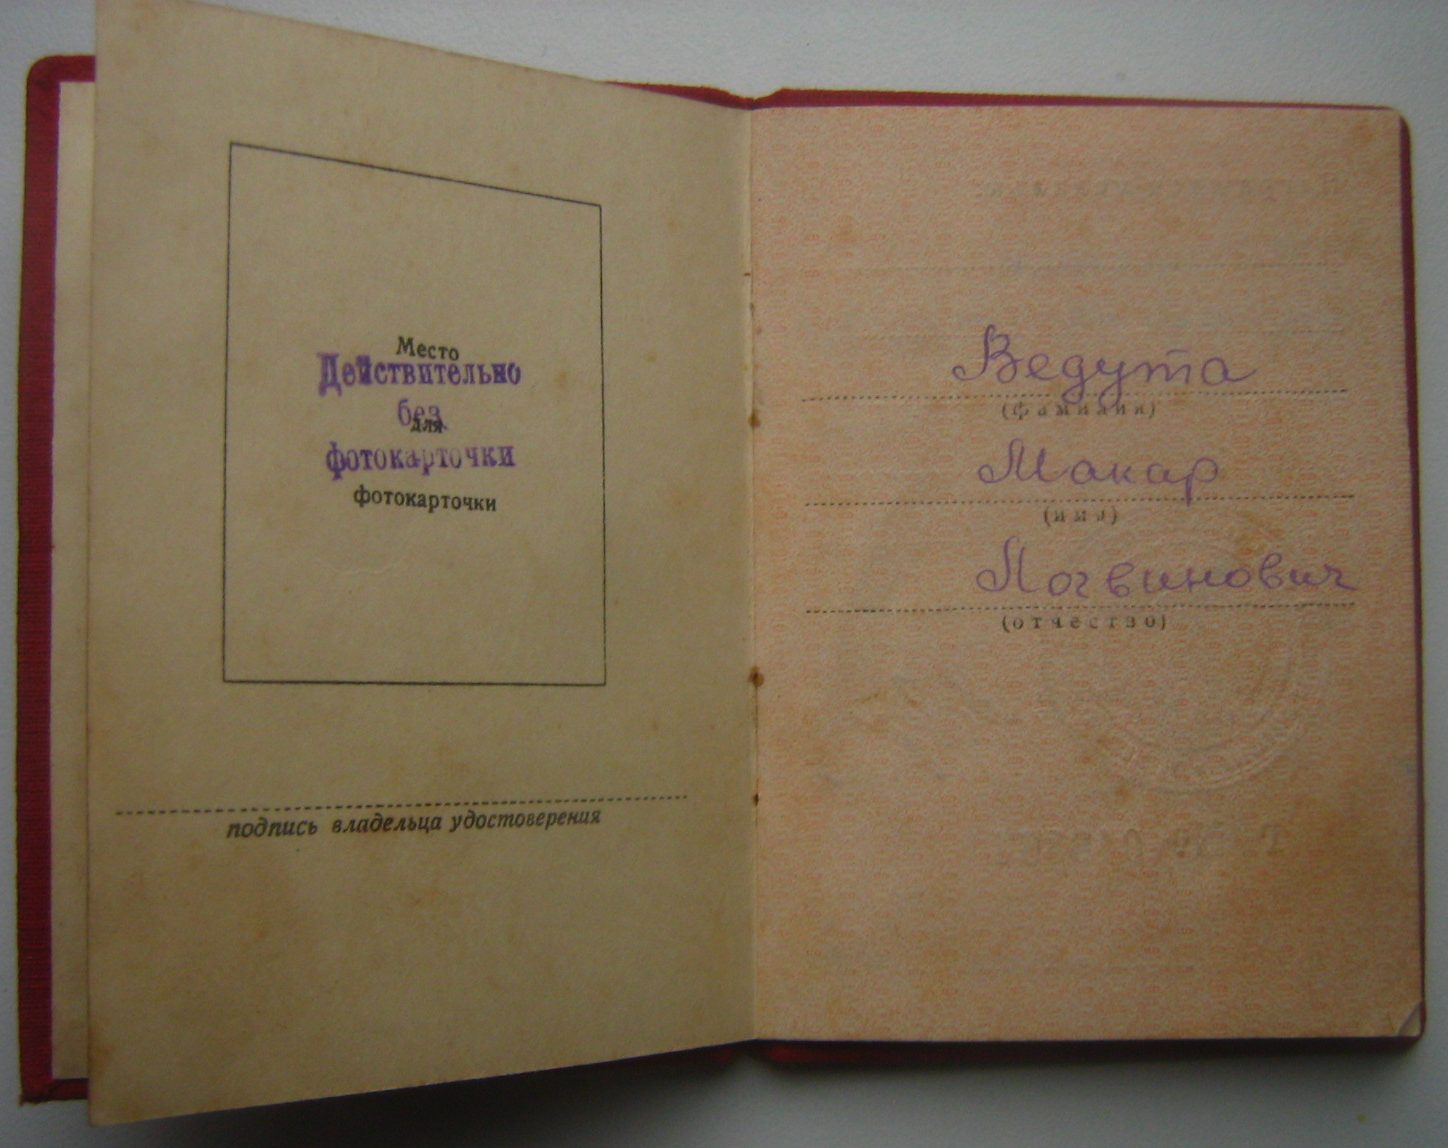 Место
Действительно
без
для
фотокарточки
фотокарточки
подпись владельца удостоверения
Ведута
(фамилия)
Макар
(имя)
Логвинович
(отчество)